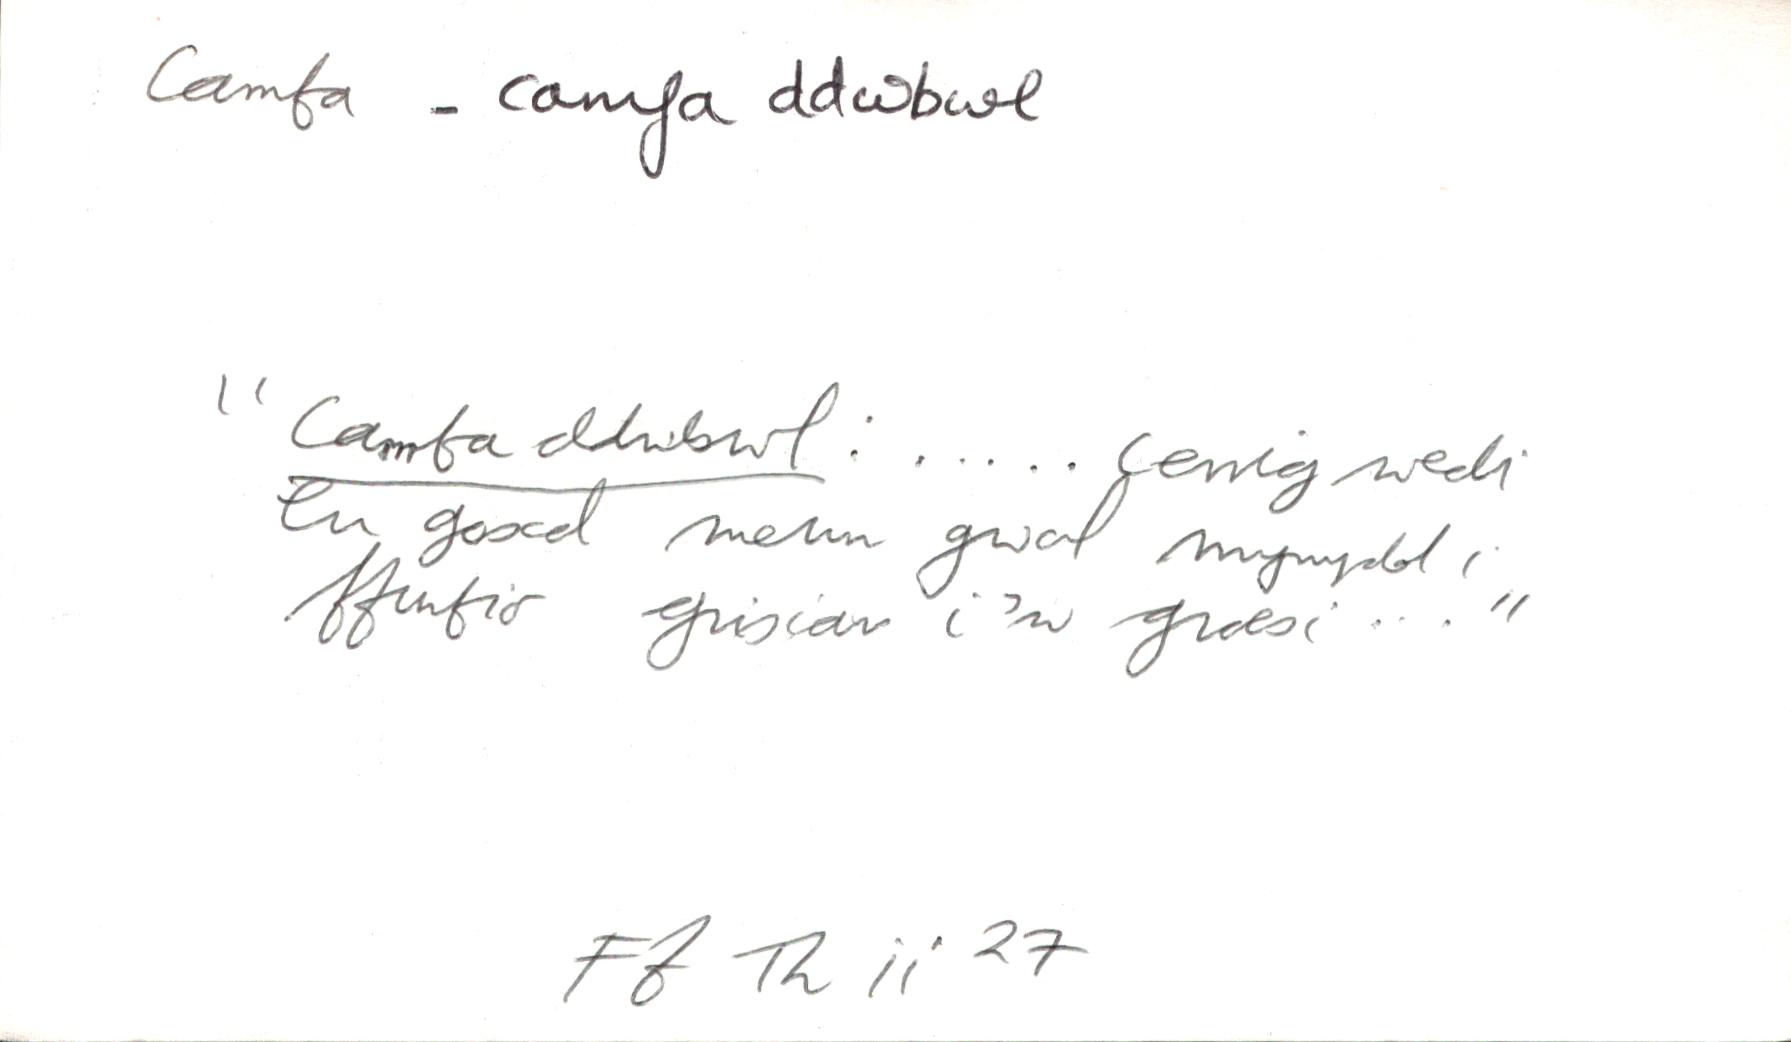 Camfa - camfa ddwbwl
"Camfa ddwbwl: ..... Cerrig wedi
eu gosod mewn gwal mynydd i
ffurfio grisiau i'w groesi ..."
Ff Th ii 27